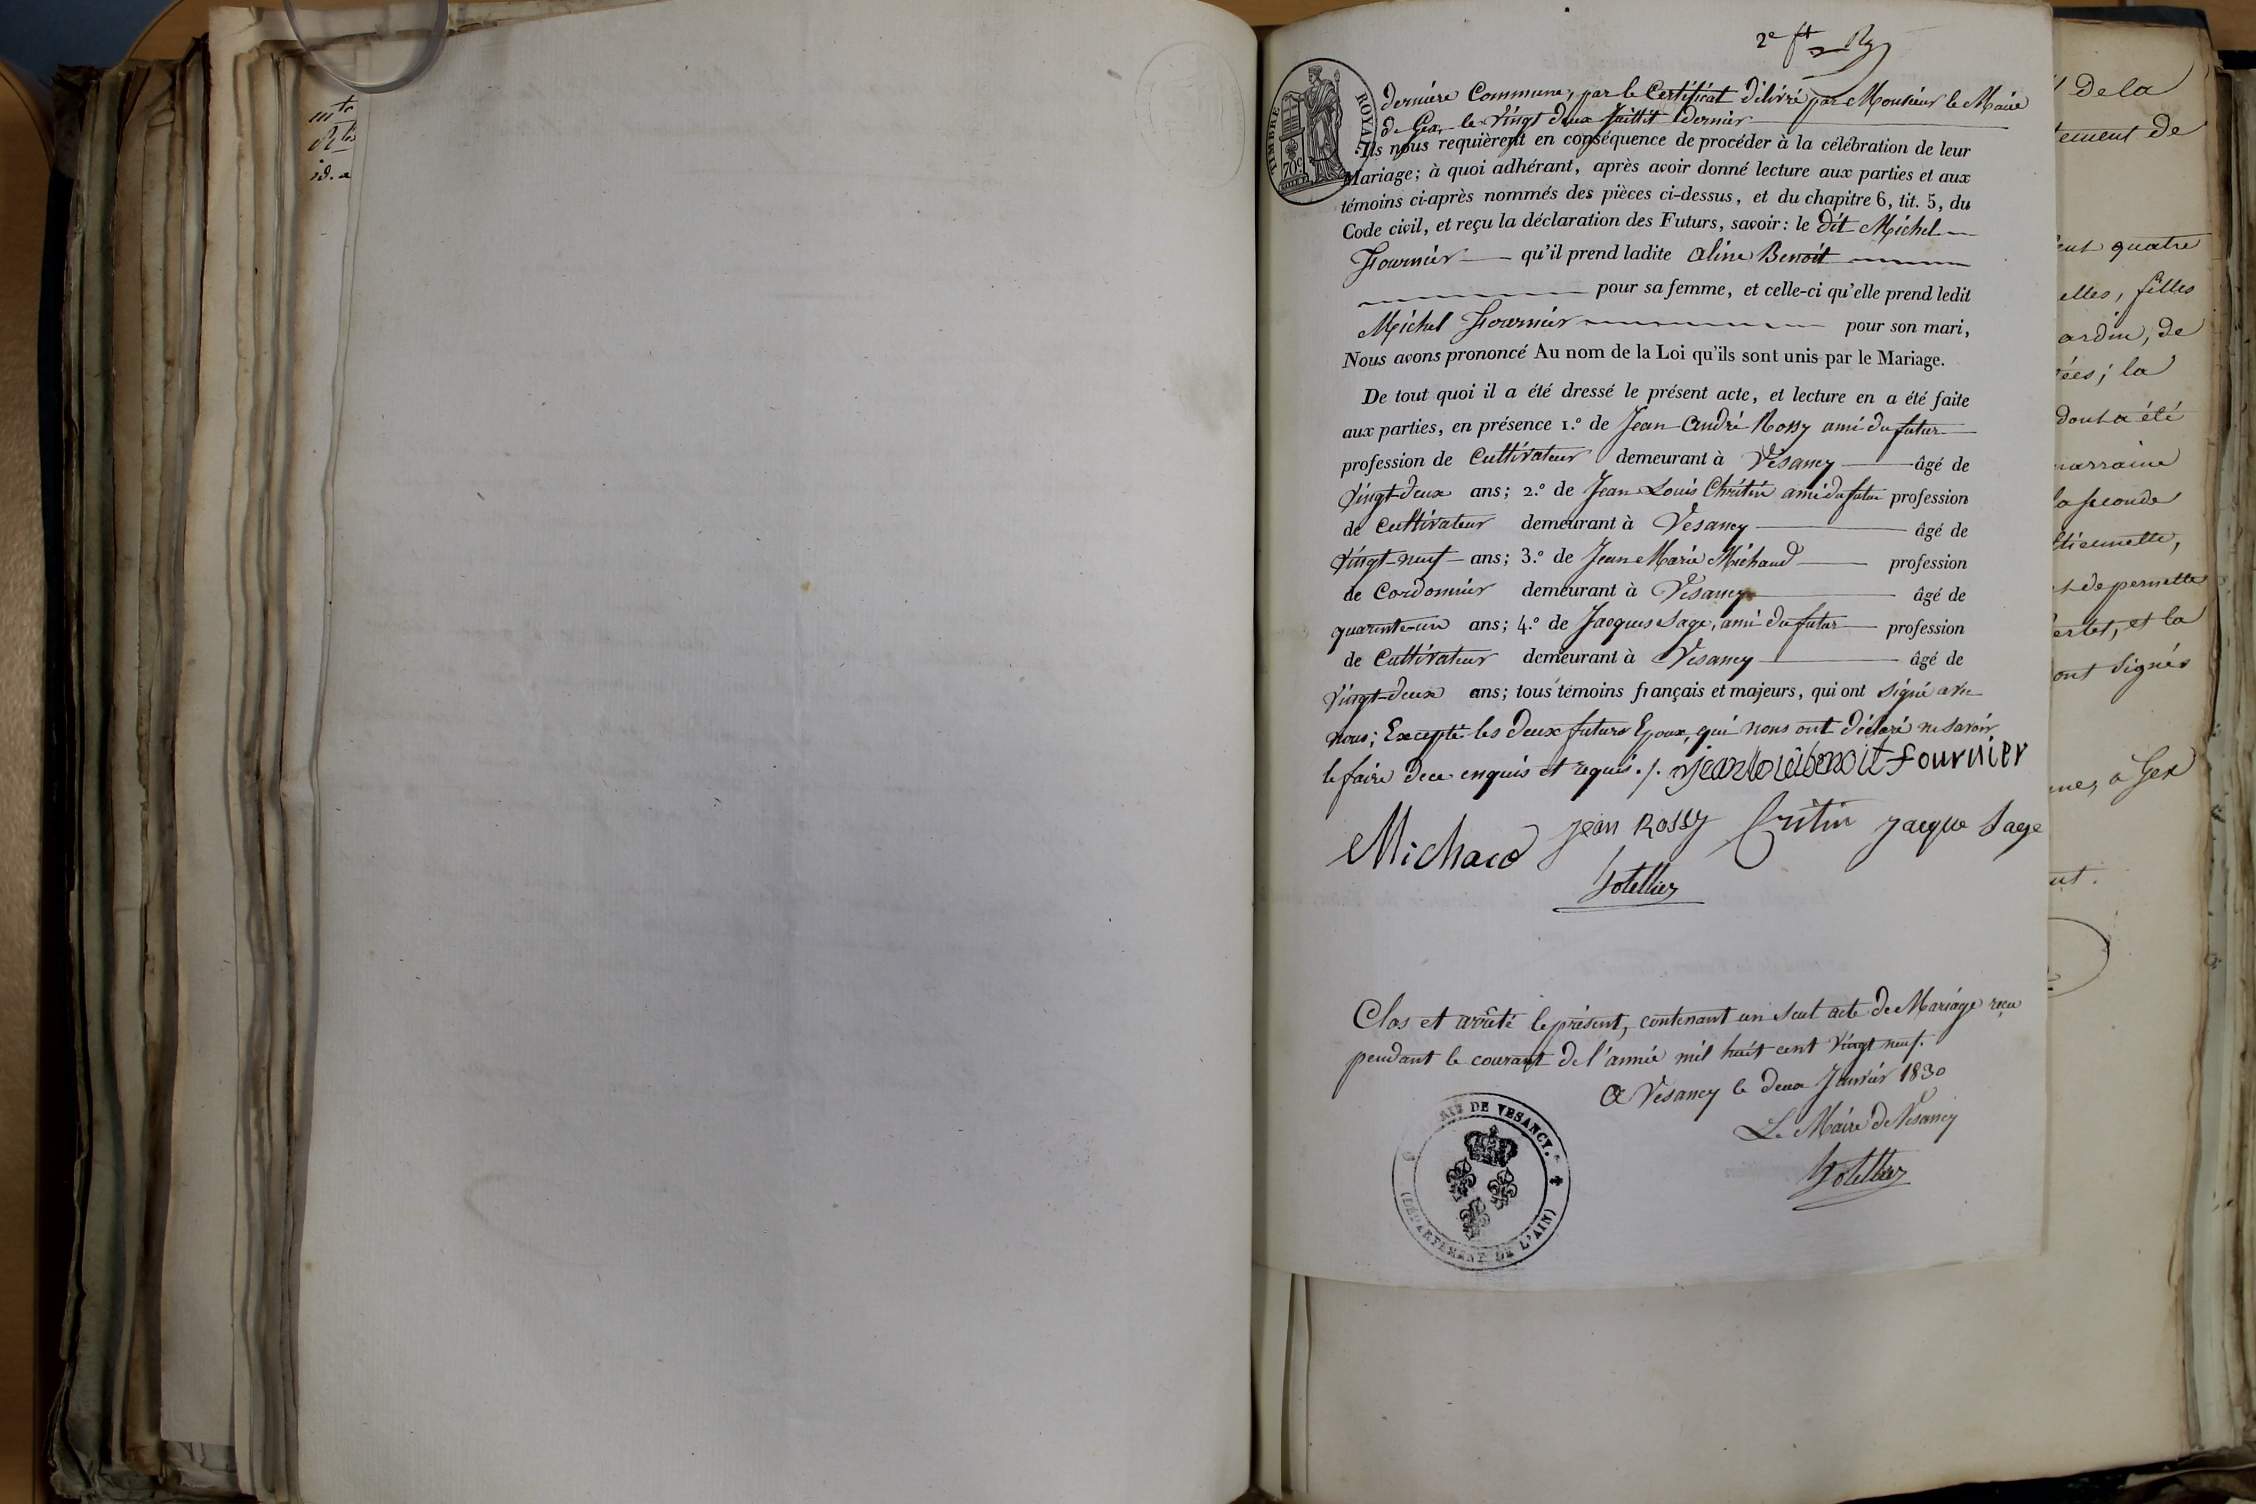 2e ft
TIMBRE ROYAL
70c
dernière Commune, par le Certificat délivré par Monsieur le Maire
de Gex le vingt deux Juillet dernier
Ils nous requièrent en conséquence de procéder à la célébration de leur
Mariage; à quoi adhérant, après avoir donné lecture aux parties et aux
témoins ci-après nommés des pièces ci-dessus, et du chapitre 6, tit. 5, du
Code civil, et reçu la déclaration des Futurs, savoir: le dit Michel
Fournier qu'il prend ladite aline Benoit
pour sa femme, et celle-ci qu'elle prend ledit
Michel Fournier pour son mari,
Nous avons prononcé Au nom de la Loi qu'ils sont unis par le Mariage.
De tout quoi il a été dressé le présent acte, et lecture en a été faite
aux parties, en présence 1.º de Jean André Rossy ami du futur
profession de Cultivateur demeurant à Vesancy âgé de
Vingt-deux ans; 2.º de Jean Louis Chrétin ami du futur profession
de Cultivateur demeurant à Vesancy âgé de
Vingt-neuf ans; 3.º de Jean Marie Michaud profession
de Cordonnier demeurant à Vesancy âgé de
quarante-un ans; 4.º de Jacques Sage, ami du futur profession
de Cultivateur demeurant à Vesancy âgé de
Vingt-deux ans; tous témoins français et majeurs, qui ont signé avec
nous; Excepté les deux futurs Epoux, qui nous ont déclaré ne savoir
le faire de ce enquis et requis ./. jean louis benoit fournier
Michaud jean Rossy Critin jacque Sage
Clos et arrêté le présent, contenant un seul acte de Mariage reçu
pendant le courant de l'année mil huit cent vingt neuf.
A Vesancy le deux Janvier 1830
Le Maire de Vesancy
DE VESANCY.
(DÉPARTEMENT DE L'AIN)
de la
tement de
quatre
elles, filles
ardin, de
ées; la
dont a été
marraine
la seconde
tiennette,
et de pernette
et la
ont signés
a Gex